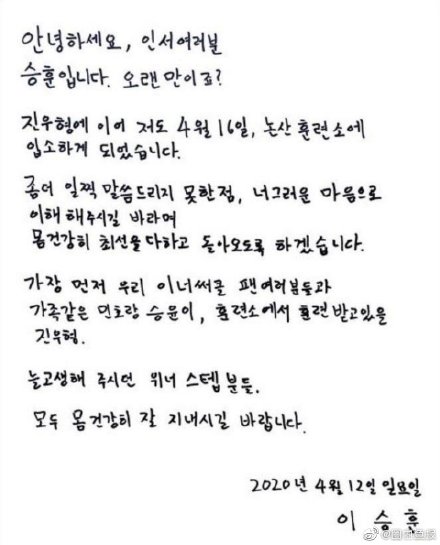 안녕하세요, 인서여러분
승훈입니다. 오랜만이죠?
진우형에 이어 저도 4월 16일, 논산 훈련소에
입소하게 되었습니다.
좀더 일찍 말씀드리지 못한점, 너그러운 마음으로
이해 해주시길 바라며
몸건강히 최선을다하고 돌아오도록 하겠습니다.
가장 먼저 우리 이너써클 팬여러분들과
가족같은 민호랑 승윤이, 훈련소에서 훈련 받고있을
진우형.
늘고생해 주시던 위너 스텝분들.
모두 몸건강히 잘 지내시길 바랍니다.
2020년 4월 12일 일요일
이 승 훈